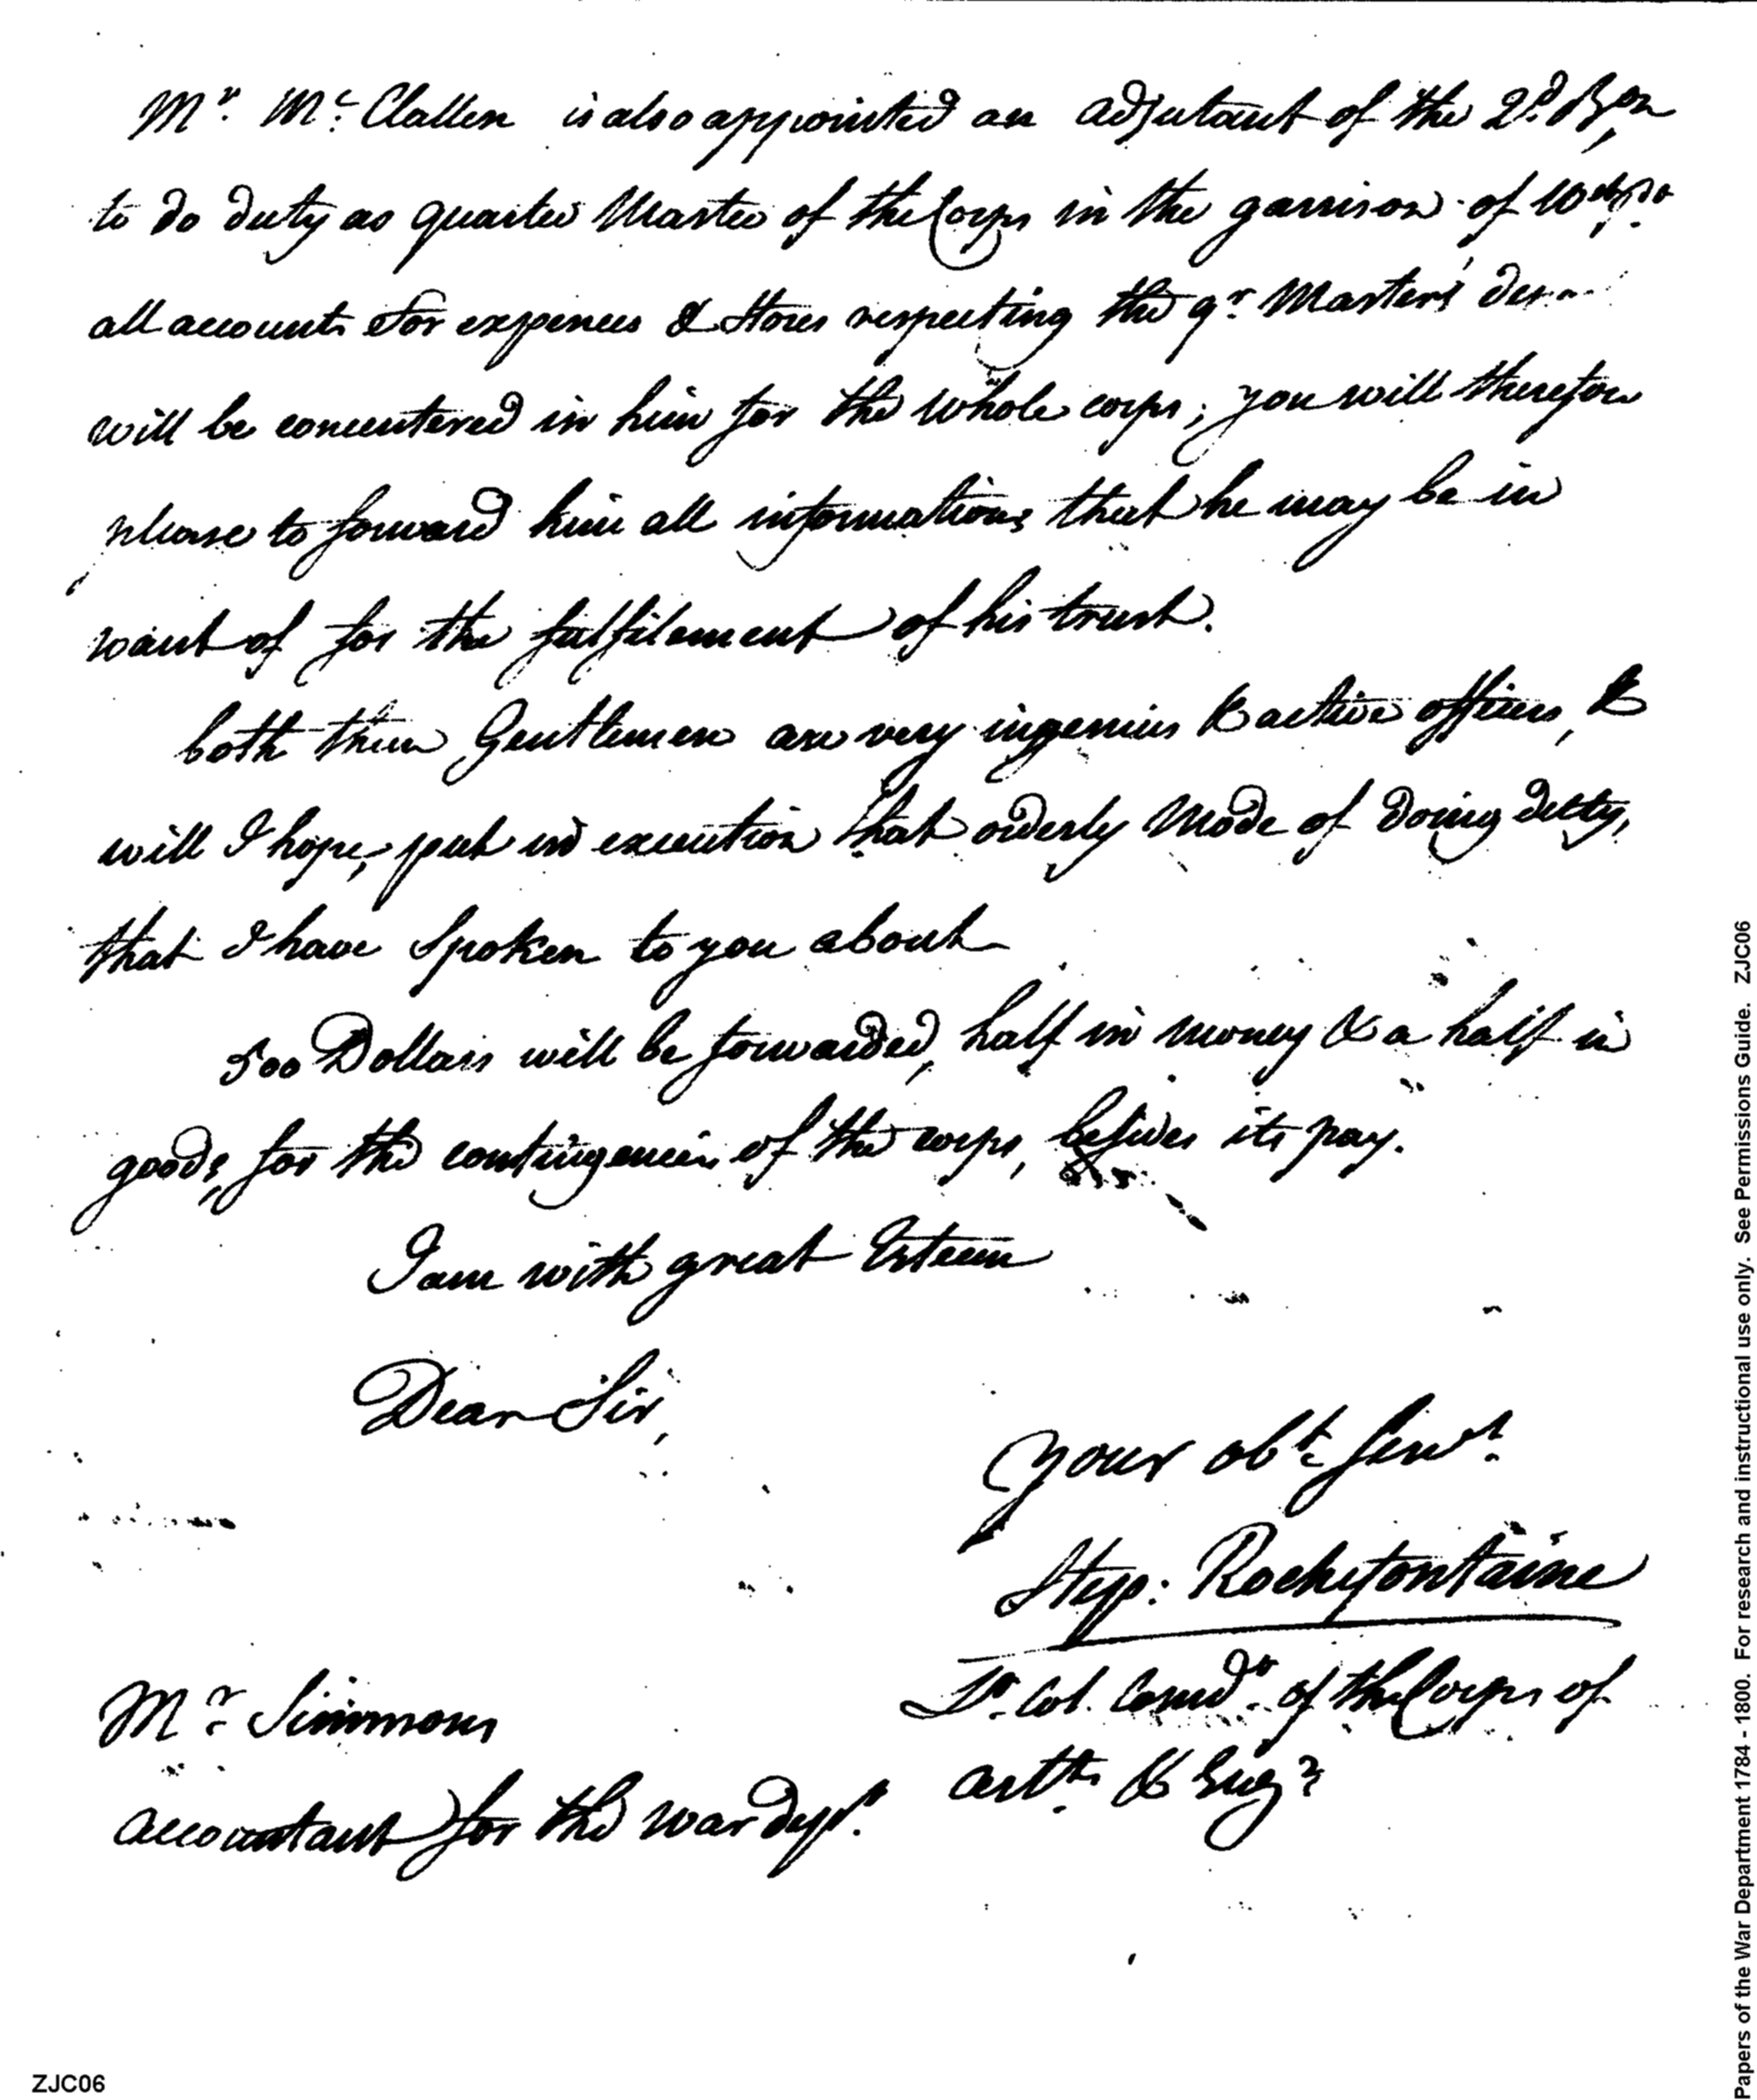 Mr. Mc. Clallen is also appointed an adjutant of the 2d. Bon
to do duty as quarter Master of the Corps in the garrison of West Pt.
all accounts for expences & Stores respecting the qr. Master's
will be concentered in him for the whole corps; you will therefore
please to forward him all informations that he may be in
want of for the fulfilement of his trust.
both these Gentlemen are very ingenius & active officers, &
will I hope, put in execution that orderly Mode of doing duty,
that I have Spoken to you about
500 Dollars will be forwarded, half in money & a half in
goods, for the contingencies of the corps, besides its pay.
I am with great Esteem
Dear Sir,
Your obt. Servt.
Step: Rochefontaine
Lt. Col. Comdt. of the Corps of
artts. & Engrs
Mr. Simmons
accountant for the war dept.
ZJC06
Papers of the War Department 1784 - 1800. For research and instructional use only. See Permissions Guide. ZJC06